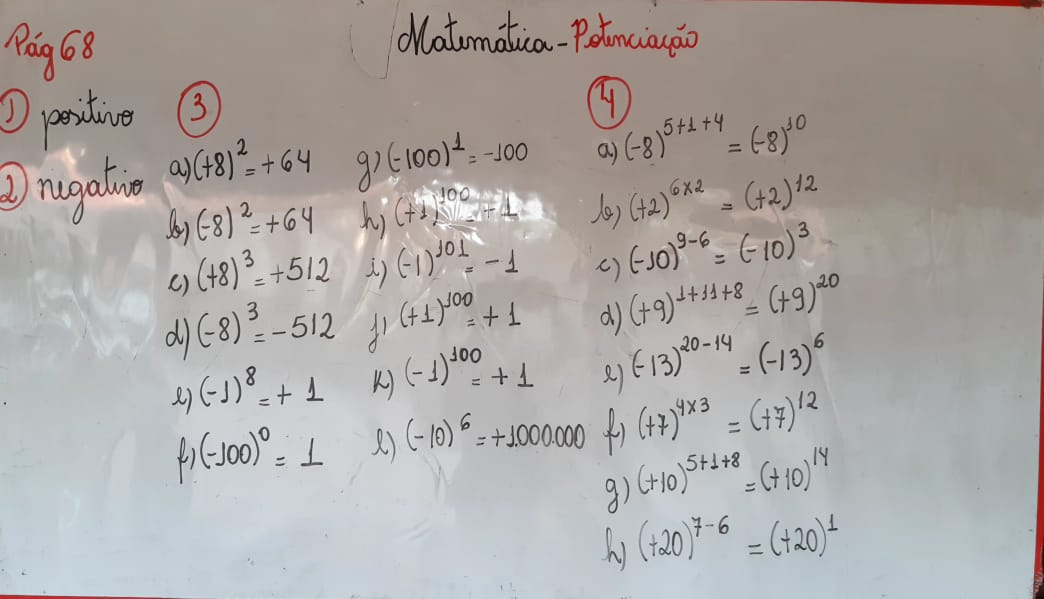 Matemática - Potenciação
Pág 68
1 positivo
2 negativo
3
a) (+8)² = +64
b) (-8)² = +64
c) (+8)³ = +512
d) (-8)³ = -512
e) (-1)⁸ = + 1
f) (-100)⁰ = 1
g) (-100)¹ = -100
h) (+1)¹⁰⁰ = +1
i) (-1)¹⁰¹ = -1
j) (+1)¹⁰⁰ = +1
k) (-1)¹⁰⁰ = +1
l) (-10)⁶ = +1.000.000
4
a) (-8)⁵⁺¹⁺⁴ = (-8)¹⁰
b) (+2)⁶ˣ² = (+2)¹²
c) (-10)⁹⁻⁶ = (-10)³
d) (+9)¹⁺¹¹⁺⁸ = (+9)²⁰
e) (-13)²⁰⁻¹⁴ = (-13)⁶
f) (+7)⁴ˣ³ = (+7)¹²
g) (+10)⁵⁺¹⁺⁸ = (+10)¹⁴
h) (+20)⁷⁻⁶ = (+20)¹